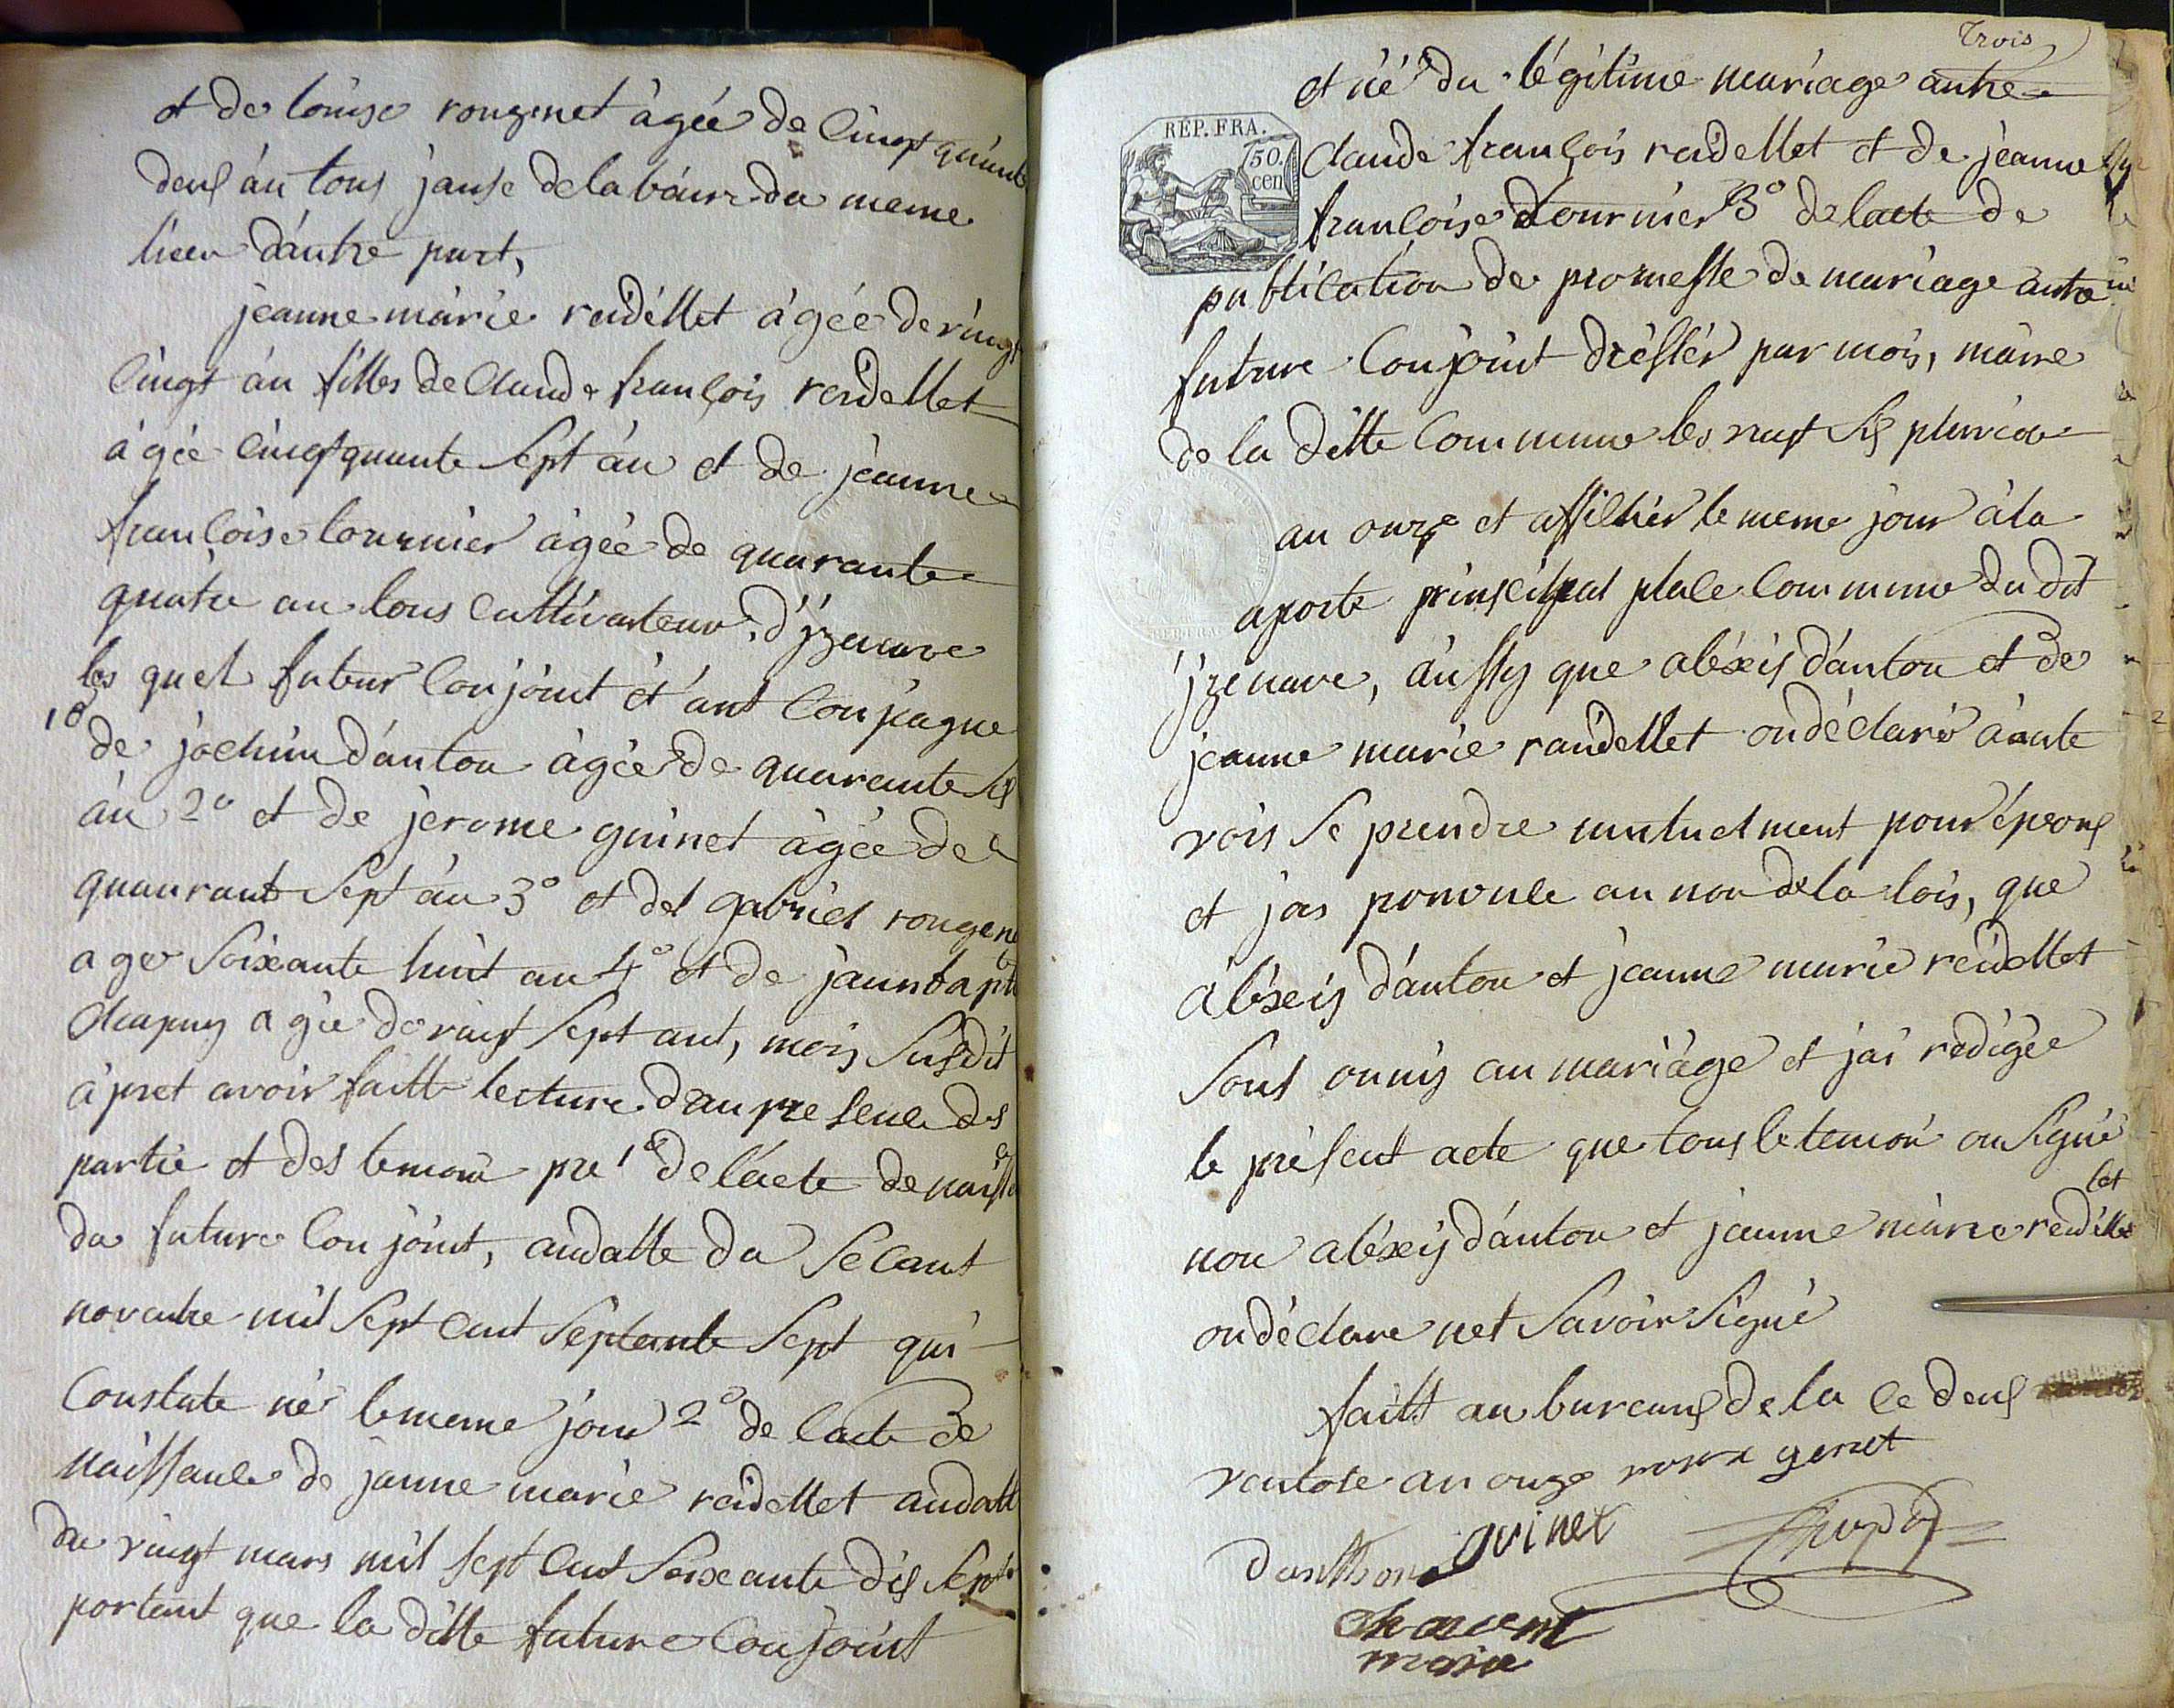 et de louise rougenet àgée de Cingt quante
deus án tous jause de la báume du meme
lieu dáutre part,
jeanne márie reidéllet ágée de vingt
Cingt án filles de Claude françois reidellet
ágée cingtquante sépt án et de jeanne
françoise tournier ágée de quarante
quátre an tous cultivateur. d'jzenave
les quel futeur Conjoint étant Conpagne
1º de jochim dánton ágée de quarente sis
án 2º et de jerome guinet àgée de
quaurant sept án 3º et del gabriel rougenet
age soixante huit an 4º et de jaunbaptte
Chapuy agée de vingt sept ant, mois susdit
á pret avoir faitte lecture dau presence des
partie et des temoin pre 1º de l'acte de naiss
du future Conjoint, audatte du
novenbre mil sept cent séptante sept qui
Constate né lememe jour 2º de lacte de
naissance de janne marie reidellet audatte
du vingt mars mil sept cent soixcante dis sept
portant que la ditte future Conjoint
Trois
et né du légitime mariage antre
RÉP. FRA.
50. cen
Claude françois reidellet et de jéanne
françoise tournier 3º de lacte de
publication de promesse de mariage antre
future Conjoint drésser par mois, màire
de la ditte Commune les sis pluviou
an onze et affichér le meme jour á la
aporte prinscipal place Commune du dit
jzenave, áussy que aléxis dánton et de
jeanne marie raidellet on déclaré áaute
vois se prendre mutuelment pour épeous
et jas pononce au non de la lois, que
áléxis dánton et jeanne marie reidellet
sont onnis an mariáge et j'ai redigée
le présent acte que tous le temoin on signé
non aléxis dánton et jeanne márie reidelle
let
on déclare net savoir signé
faitt au bureaus de la ce deus
ventose an onze genet
danthon guinet Chapuy
maire